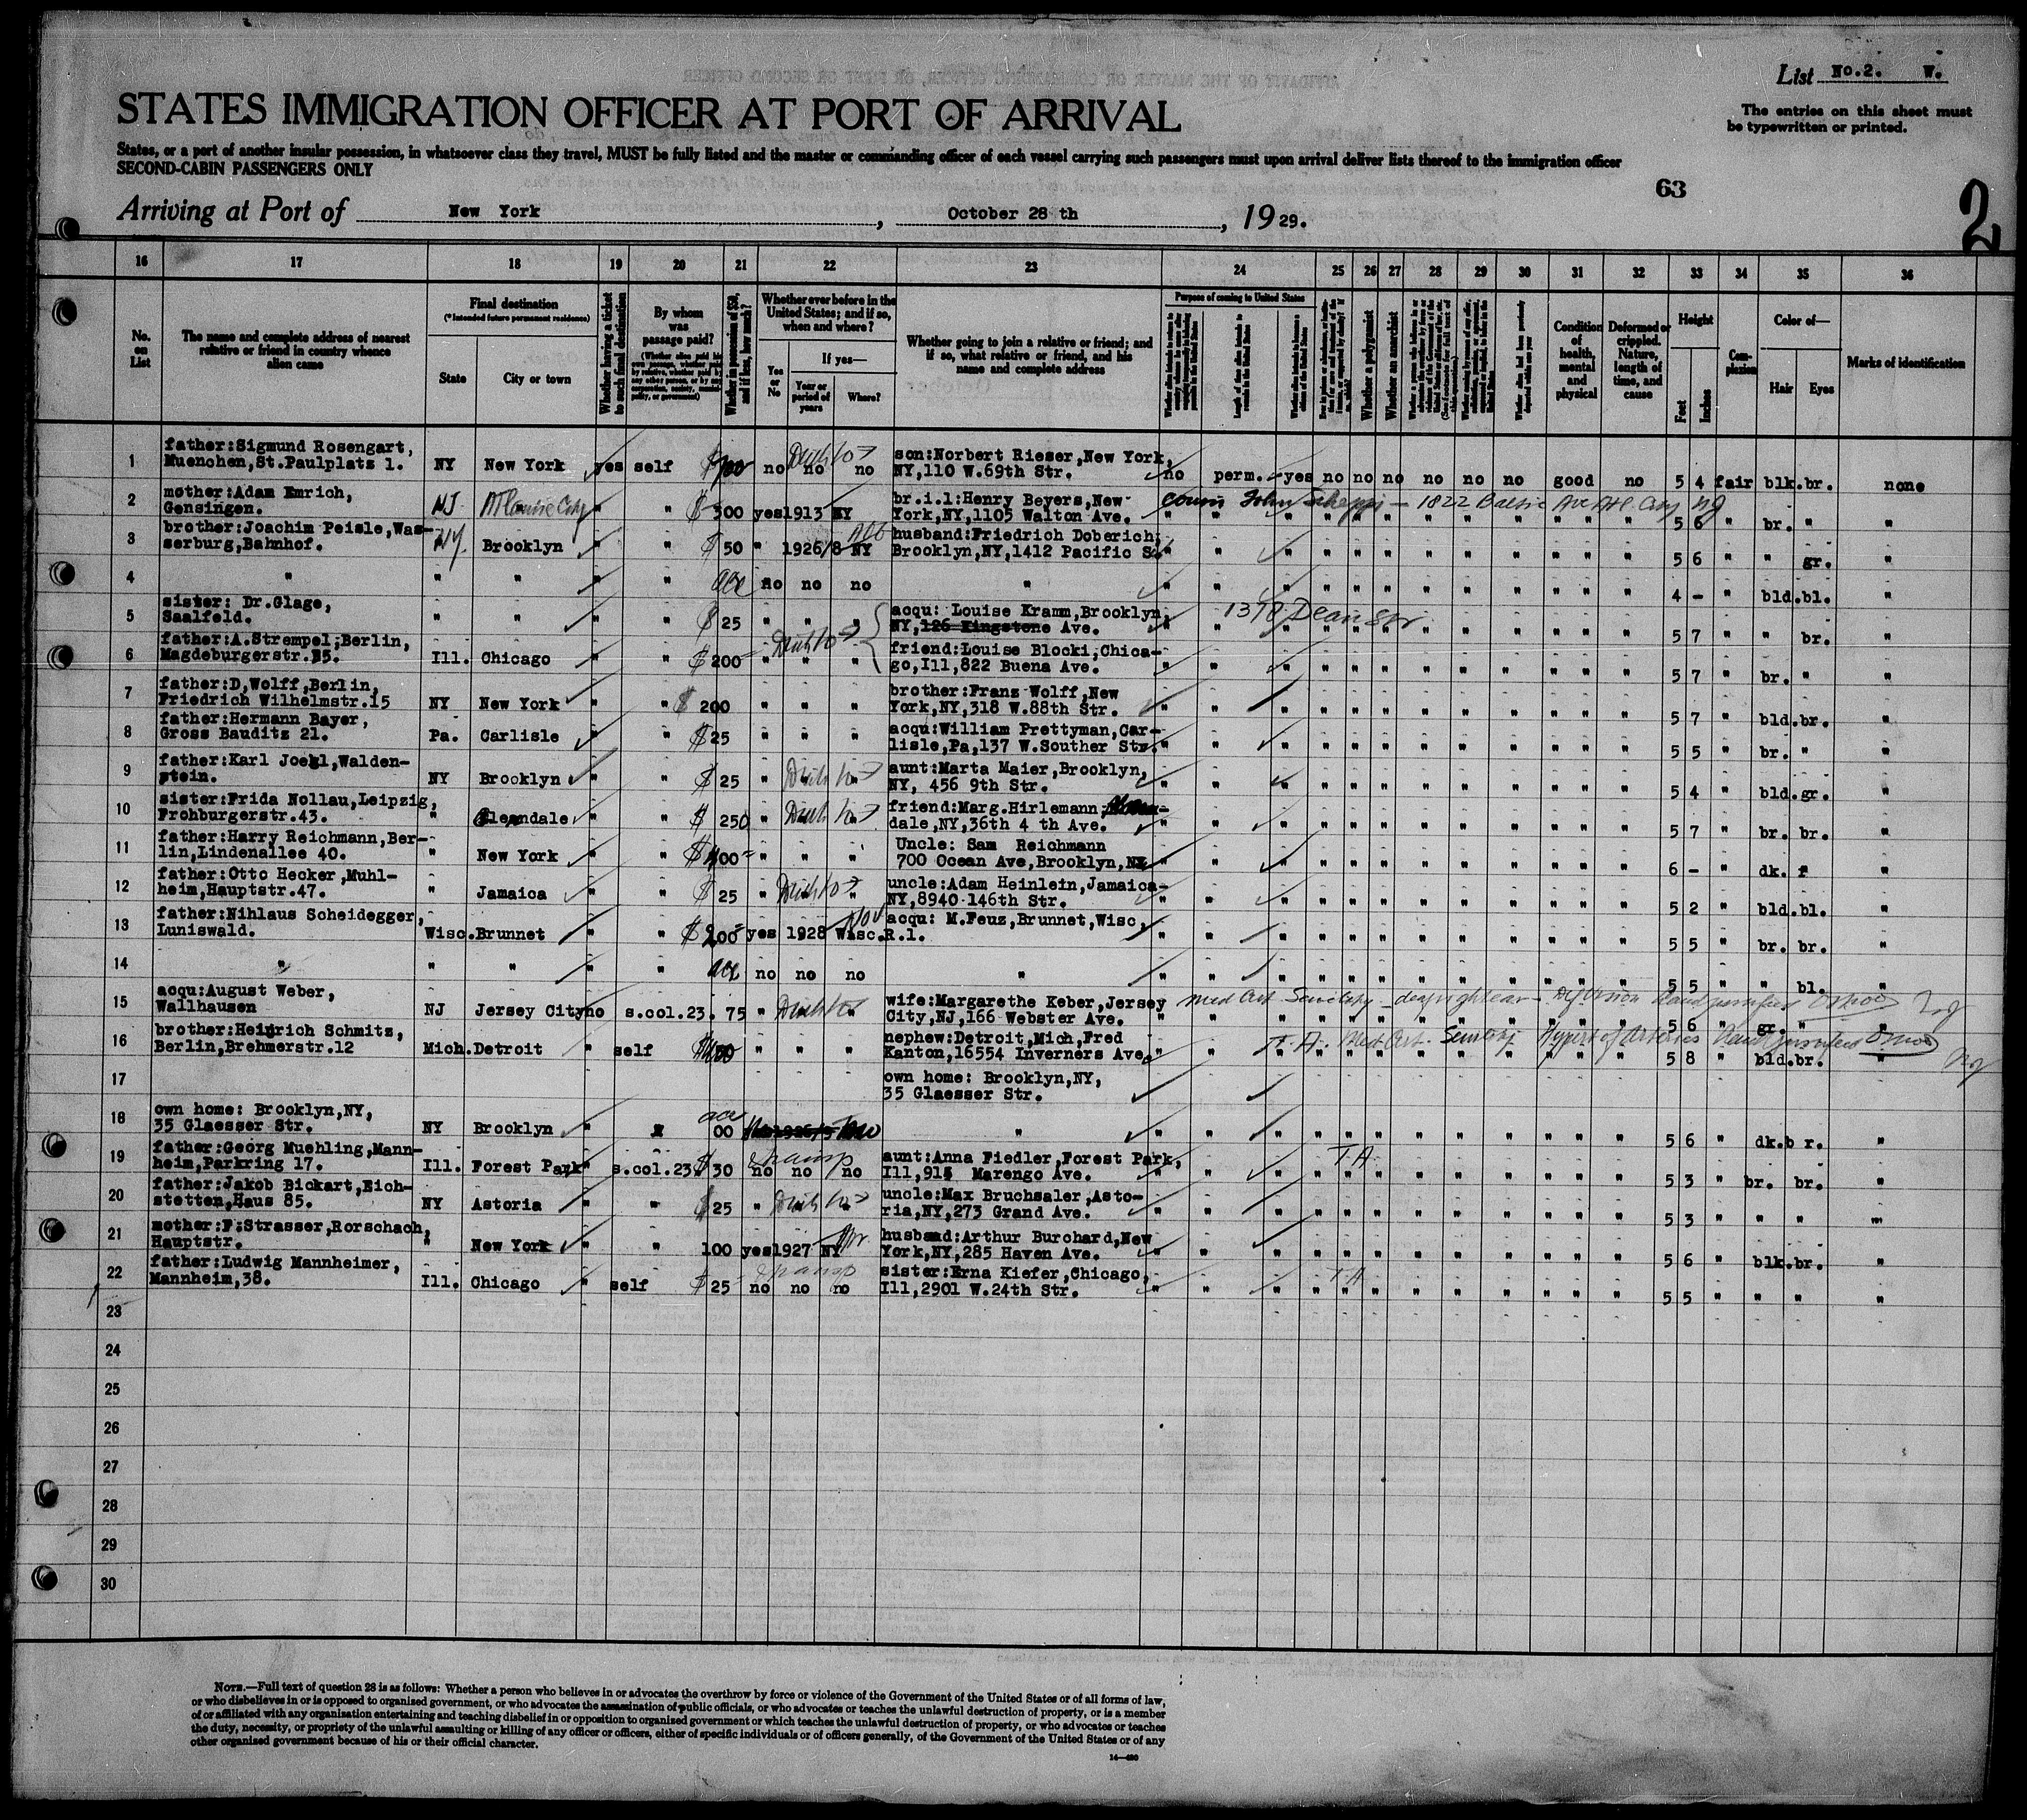 List No.2. W.
The entries on this sheet must
be typewritten or printed.
STATES IMMIGRATION OFFICER AT PORT OF ARRIVAL
States, or a port of another insular possession, in whatsoever class they travel, MUST be fully listed and the master or commanding officer of each vessel carrying such passengers must upon arrival deliver lists thereof to the immigration officer
SECOND-CABIN PASSENGERS ONLY
63
2
Arriving at Port of New York, October 28 th, 19 29.
16 17 18 19 20 21 22 23 24 25 26 27 28 29 30 31 32 33 34 35 36
No. on List
The name and complete address of nearest relative or friend in country whence alien came
Final destination
(*Intended future permanent residence)
State
City or town
Whether having a ticket to such final destination
By whom was passage paid?
Whether in possession of $50, and if less, how much?
Whether ever before in the United States; and if so, when and where?
Yes or No
If yes—
Year or period of years
Where?
Whether going to join a relative or friend; and if so, what relative or friend, and his name and complete address
Purpose of coming to United States
Length of time alien intends to remain in the United States
Whether a polygamist
Whether an anarchist
Condition of health, mental and physical
Deformed or crippled. Nature, length of time, and cause
Height
Feet
Inches
Complexion
Color of—
Hair
Eyes
Marks of identification
1 father:Sigmund Rosengart, son:Norbert Rieser,New York,
Muenchen,St.Paulplatz 1. NY New York yes self no no no NY,110 W.69th Str. no perm. yes no no no no no no good no 5 4 fair blk.br. none
2 mother:Adam Emrich, br.i.l:Henry Beyers,New
Gensingen. NJ Atlantic City " " $ 300 yes 1913 NY York,NY,1105 Walton Ave. " " " " " " " " " " " 5 6 " br. " "
cousin John 1822 Baltic Ave Atl. City NJ
3 brother:Joachim Peisle,Was- husband:Friedrich Doberich,
serburg,Bahnhof. NY. Brooklyn " " $ 50 " 1926/8 NY Brooklyn,NY,1412 Pacific S. " " " " " " " " " " " 5 6 " " gr. "
4 " " " " " acc no no no " " " " " " " " " " " " 4 - " bld.bl. "
5 sister: Dr.Glage, acqu: Louise Kramm,Brooklyn,
Saalfeld. " " " " $ 25 " " " NY,126 Kingstone Ave. Dean Str 5 7 " " br. "
6 father:A.Strempel,Berlin, friend:Louise Blocki,Chica-
Magdeburgerstr.35. Ill. Chicago " " $ 200 " " " go,Ill,822 Buena Ave. " " " " " " " " " " " 5 7 " br. " "
7 father:D,Wolff,Berlin, brother:Franz Wolff,New
Friedrich Wilhelmstr.15 NY New York " " $ 200 " " " York,NY,318 W.88th Str. " " " " " " " " " " 5 7 " bld.br. "
8 father:Hermann Bayer, acqu:William Prettyman,Car-
Gross Bauditz 21. Pa. Carlisle " " $ 25 " " " lisle,Pa,137 W.Souther Str. " " " " " " " " " " 5 5 " br. " "
9 father:Karl Joekl,Walden- aunt:Marta Maier,Brooklyn,
stein. NY Brooklyn " " $ 25 " " NY, 456 9th Str. " " " " " " " " " " 5 4 " bld.gr. "
10 sister:Frida Nollau,Leipzig, friend:Marg.Hirlemann,
Frohburgerstr.43. " Gleandale " " $ 250 " " dale,NY,36th 4 th Ave. " " " " " " " " " " 5 7 " br. br. "
11 father:Harry Reichmann,Ber- Uncle: Sam Reichmann
lin,Lindenallee 40. " New York " " $ 400 " " " 700 Ocean Ave,Brooklyn,NY " " " " " " " " " " 6 - " dk. "
12 father:Otto Hecker,Muhl- uncle:Adam Heinlein,Jamaica-
heim,Hauptstr.47. " Jamaica " " $ 25 " " NY,8940 146th Str. " " " " " " " " " " 5 2 " bld.bl. "
13 father:Nihlaus Scheidegger, acqu: M.Feuz,Brunnet,Wisc,
Luniswald. Wisc. Brunnet " " $ 200 yes 1928 Wisc. R.l. " " " " " " " " " " 5 5 " br. br. "
14 " " " " " acc no no no " " " " " " " " " " " 5 5 " " bl. "
15 acqu:August Weber, wife:Margarethe Keber,Jersey
Wallhausen NJ Jersey City no s.col.23. 75 " City,NJ,166 Webster Ave. " " " " " " " " " 5 6 " gr. " "
Med Cert Senility
16 brother:Heinrich Schmitz, nephew:Detroit,Mich,Fred
Berlin,Brehmerstr.12 Mich. Detroit " self " " " Kanton,16554 Inverners Ave. 5 8 bld.br. "
T.A. Med Cert. Senility
17 own home: Brooklyn,NY,
35 Glaesser Str.
18 own home: Brooklyn,NY,
35 Glaesser Str. NY Brooklyn " acc 00 " " " " " " " " " " " 5 6 " dk.b r. "
19 father:Georg Muehling,Mann- aunt:Anna Fiedler,Forest Park,
heim,Parkring 17. Ill. Forest Park " s.col.23. $ 30 no no no Ill,915 Marengo Ave. T.A. " " " " " " " " " 5 3 " br. br. "
20 father:Jakob Bickart,Eich- uncle:Max Bruchsaler,Asto-
stetten,Haus 85. NY Astoria " " $ 25 " " ria,NY,273 Grand Ave. " " " " " " " " " " 5 3 " " " "
21 mother:F.Strasser,Rorschach, husband:Arthur Burchard,New
Hauptstr. " New York " " 100 yes 1927 NY York,NY,285 Haven Ave. " " " " " " " " " " 5 6 " blk.br. "
22 father:Ludwig Mannheimer, sister:Erna Kiefer,Chicago,
Mannheim,38. Ill. Chicago " self $ 25 no no no Ill,2901 W.24th Str. T.A. " " " " " " " " " 5 5 " " " "
23
24
25
26
27
28
29
30
NOTE.—Full text of question 28 is as follows: Whether a person who believes in or advocates the overthrow by force or violence of the Government of the United States or of all forms of law,
or who disbelieves in or is opposed to organized government, or who advocates the assassination of public officials, or who advocates or teaches the unlawful destruction of property, or is a member
of or affiliated with any organization entertaining and teaching disbelief in or opposition to organized government or which teaches the unlawful destruction of property, or who advocates or teaches
the duty, necessity, or propriety of the unlawful assaulting or killing of any officer or officers, either of specific individuals or of officers generally, of the Government of the United States or of any
other organized government because of his or their official character.
14—480